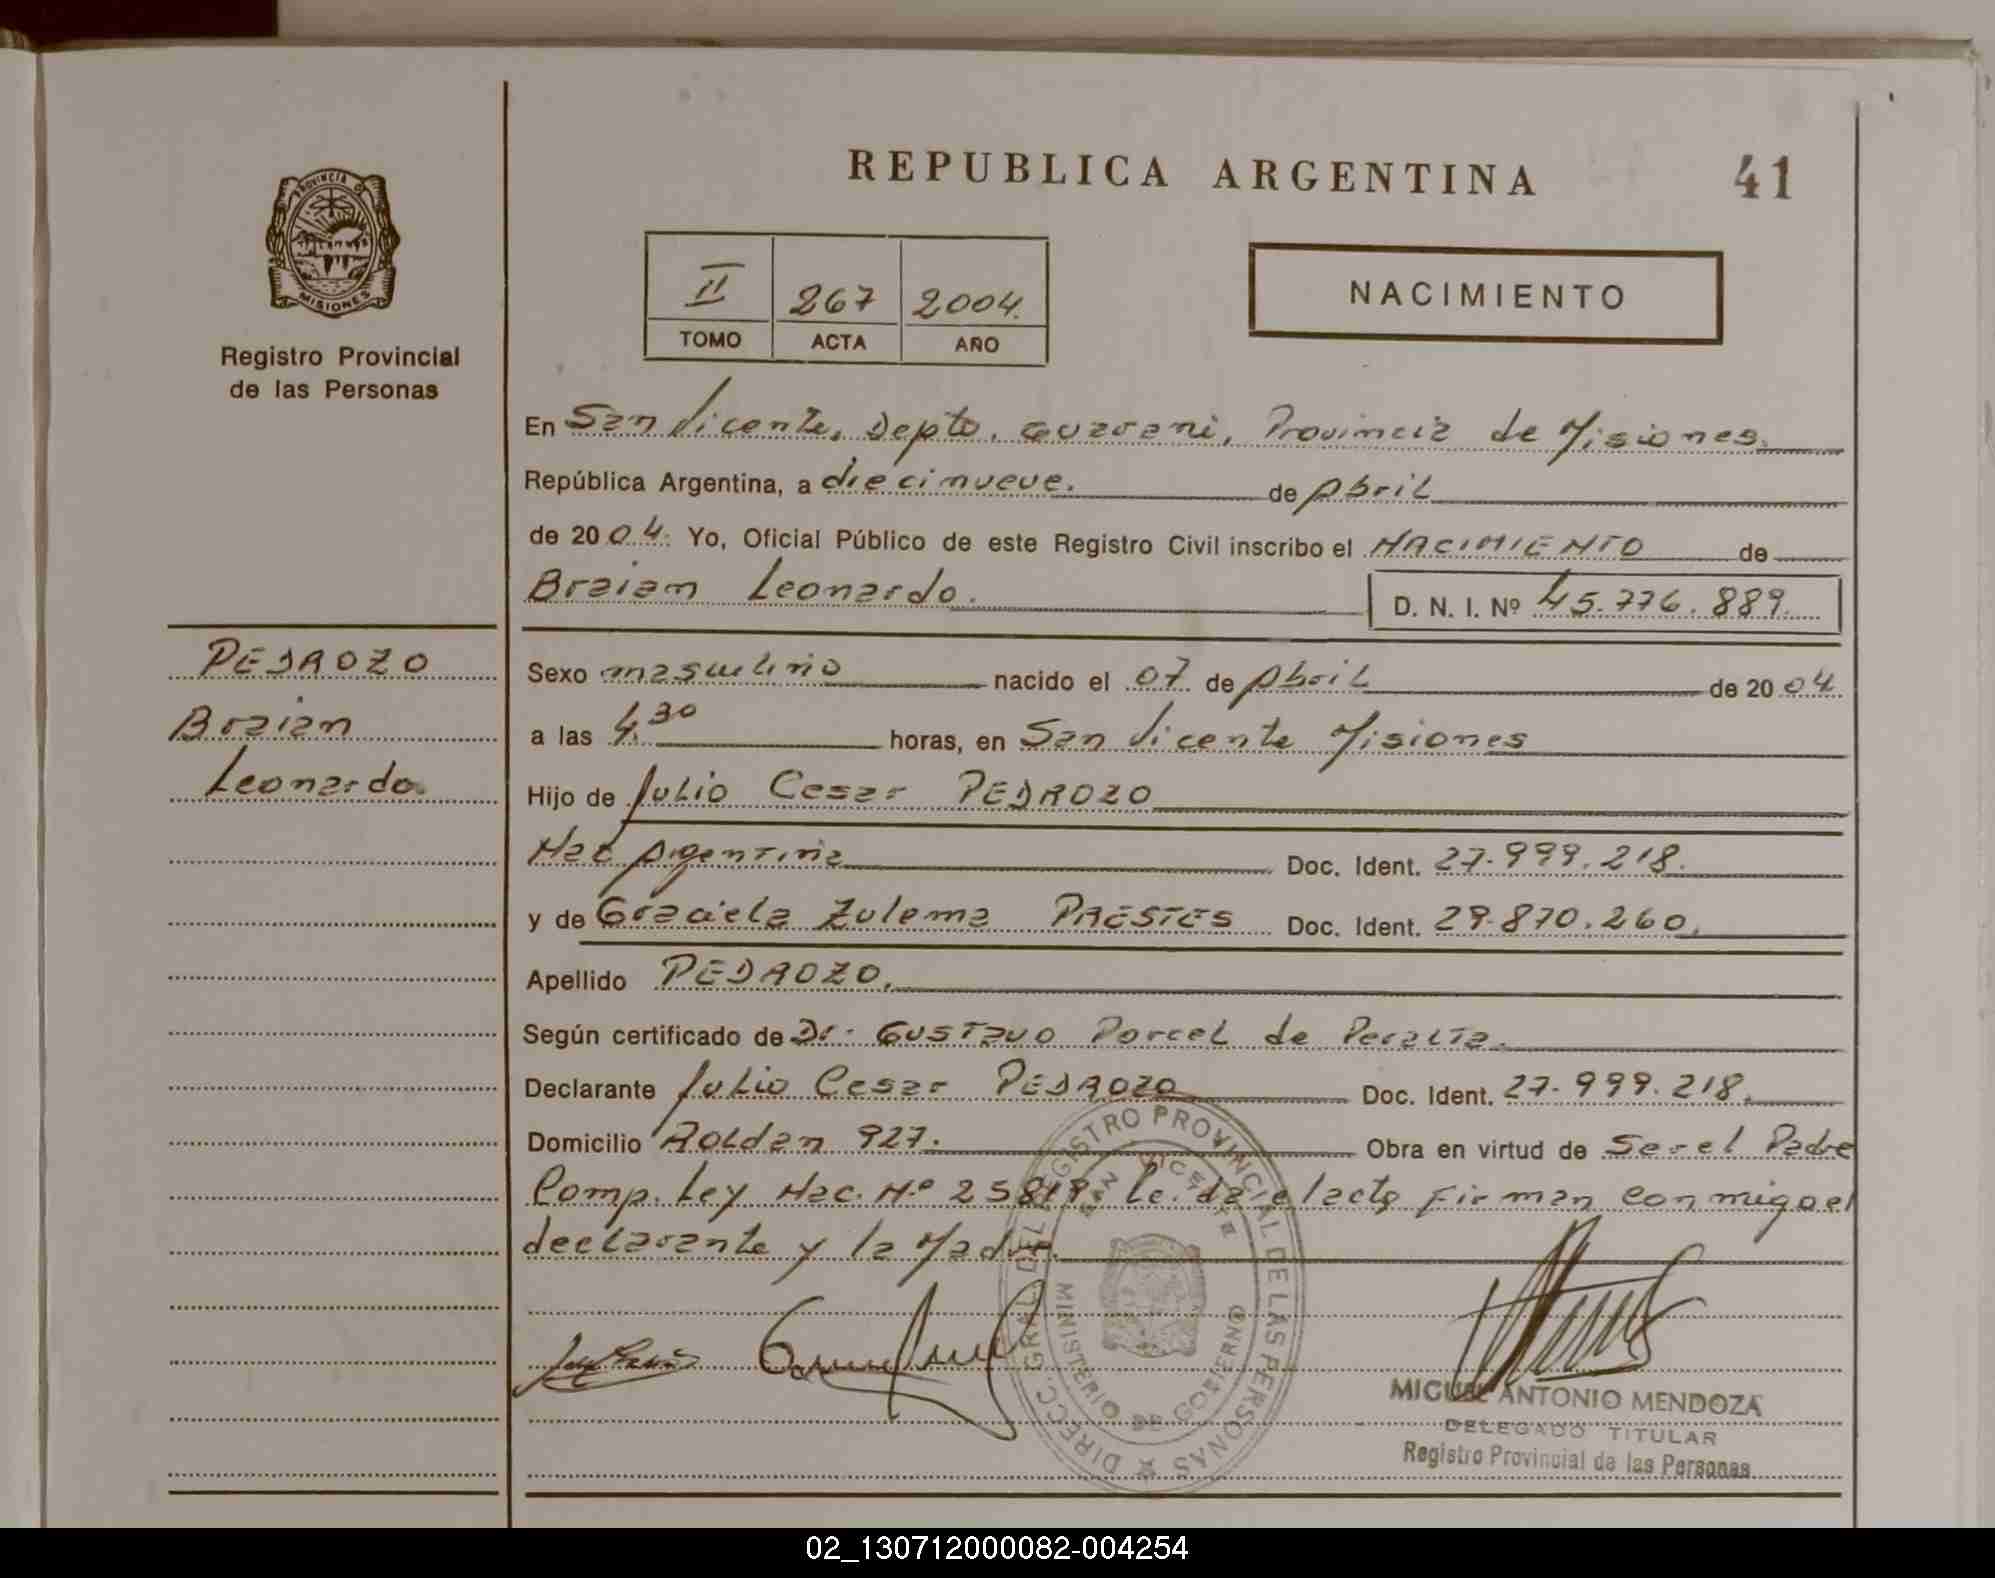 REPUBLICA ARGENTINA
41
PROVINCIA D
MISIONES
Registro Provincial
de las Personas
II 267 2004.
TOMO ACTA AÑO
NACIMIENTO
En San Vicente, Depto. Guarani, Provincia de Misiones.
República Argentina, a diecinueve. de Abril
de 2004. Yo, Oficial Público de este Registro Civil inscribo el NACIMIENTO de
Braian Leonardo.
D. N. I. Nº 45.776.889.
PEDROZO
Braian
Leonardo
Sexo masculino nacido el 07 de Abril de 2004.
a las 4.30 horas, en San Vicente Misiones
Hijo de Julio Cesar PEDROZO
Nac Argentina Doc. Ident. 27.999.218.
y de Graciela Zulema PRESTES Doc. Ident. 29.870.260.
Apellido PEDROZO.
Según certificado de Dr. Gustavo Porcel de Peralta.
Declarante Julio Cesar PEDROZO Doc. Ident. 27.999.218.
Domicilio Roldan 927. Obra en virtud de Ser el Padre
Comp. Ley Nac. Nº 25819 Le. da el acta firman conmigo el
declarante y la Madre.
DIRECC. GRAL DEL REGISTRO PROVINCIAL DE LAS PERSONAS
SAN VICENTE
MINISTERIO DE GOBIERNO
MIGUEL ANTONIO MENDOZA
DELEGADO TITULAR
Registro Provincial de las Personas
02_130712000082-004254